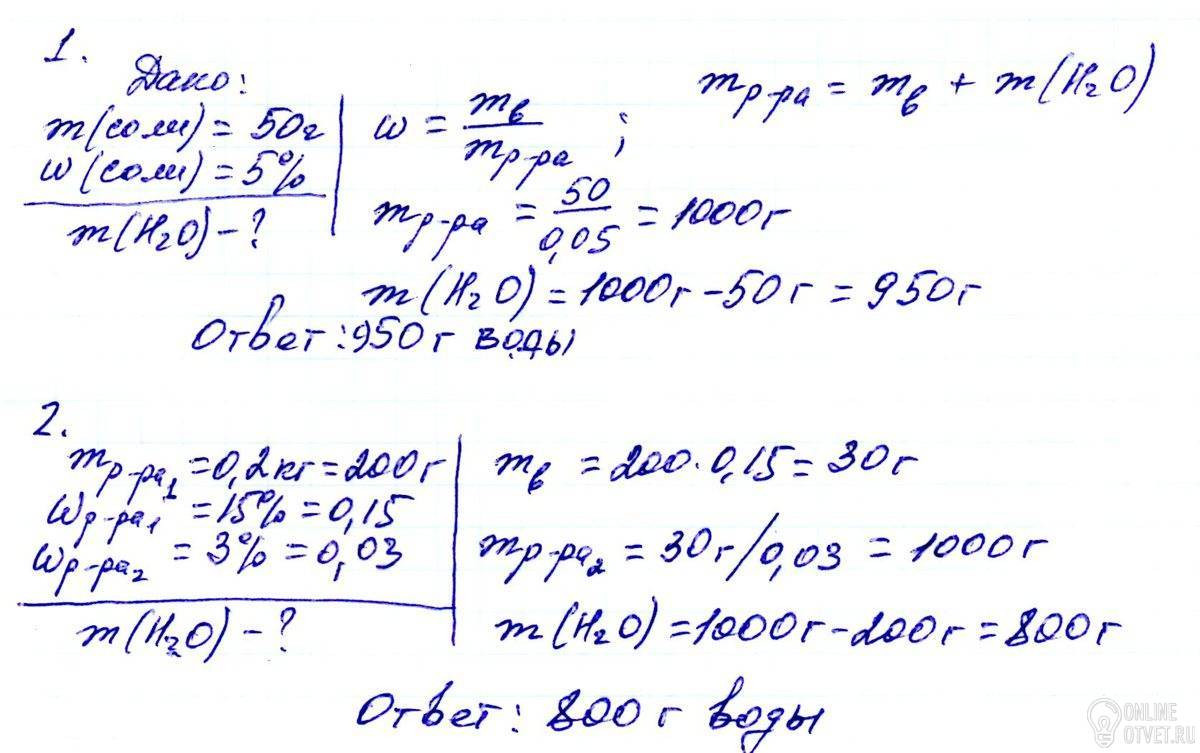 1.
Дано:
m(соли) = 50г
w(соли) = 5%
m(H₂O) - ?
w = mв / mр-ра ;
mр-ра = mв + m(H₂O)
mр-ра = 50 / 0,05 = 1000г
m(H₂O) = 1000г - 50г = 950г
Ответ: 950г воды
2.
mр-ра₁ = 0,2кг = 200г
wр-ра₁ = 15% = 0,15
wр-ра₂ = 3% = 0,03
m(H₂O) - ?
mв = 200·0,15 = 30г
mр-ра₂ = 30г/0,03 = 1000г
m(H₂O) = 1000г - 200г = 800г
Ответ: 800г воды
ONLINE
OTVET.RU